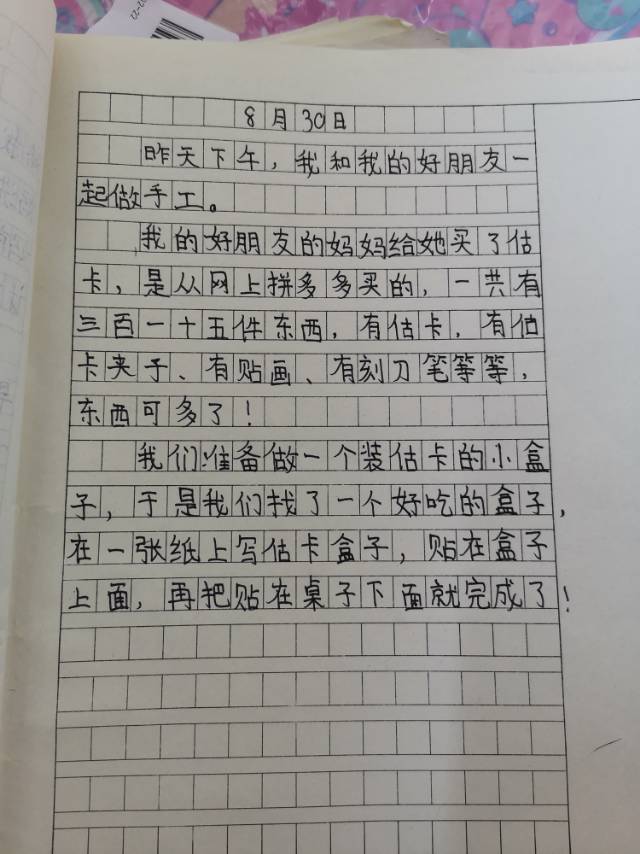 8月30日
昨天下午，我和我的好朋友一
起做手工。
我的好朋友的妈妈给她买了估
卡，是从网上拼多多买的，一共有
三百一十五件东西，有估卡，有估
卡夹子、有贴画、有刻刀笔等等，
东西可多了！
我们准备做一个装估卡的小盒
子，于是我们找了一个好吃的盒子，
在一张纸上写估卡盒子，贴在盒子
上面，再把贴在桌子下面就完成了！